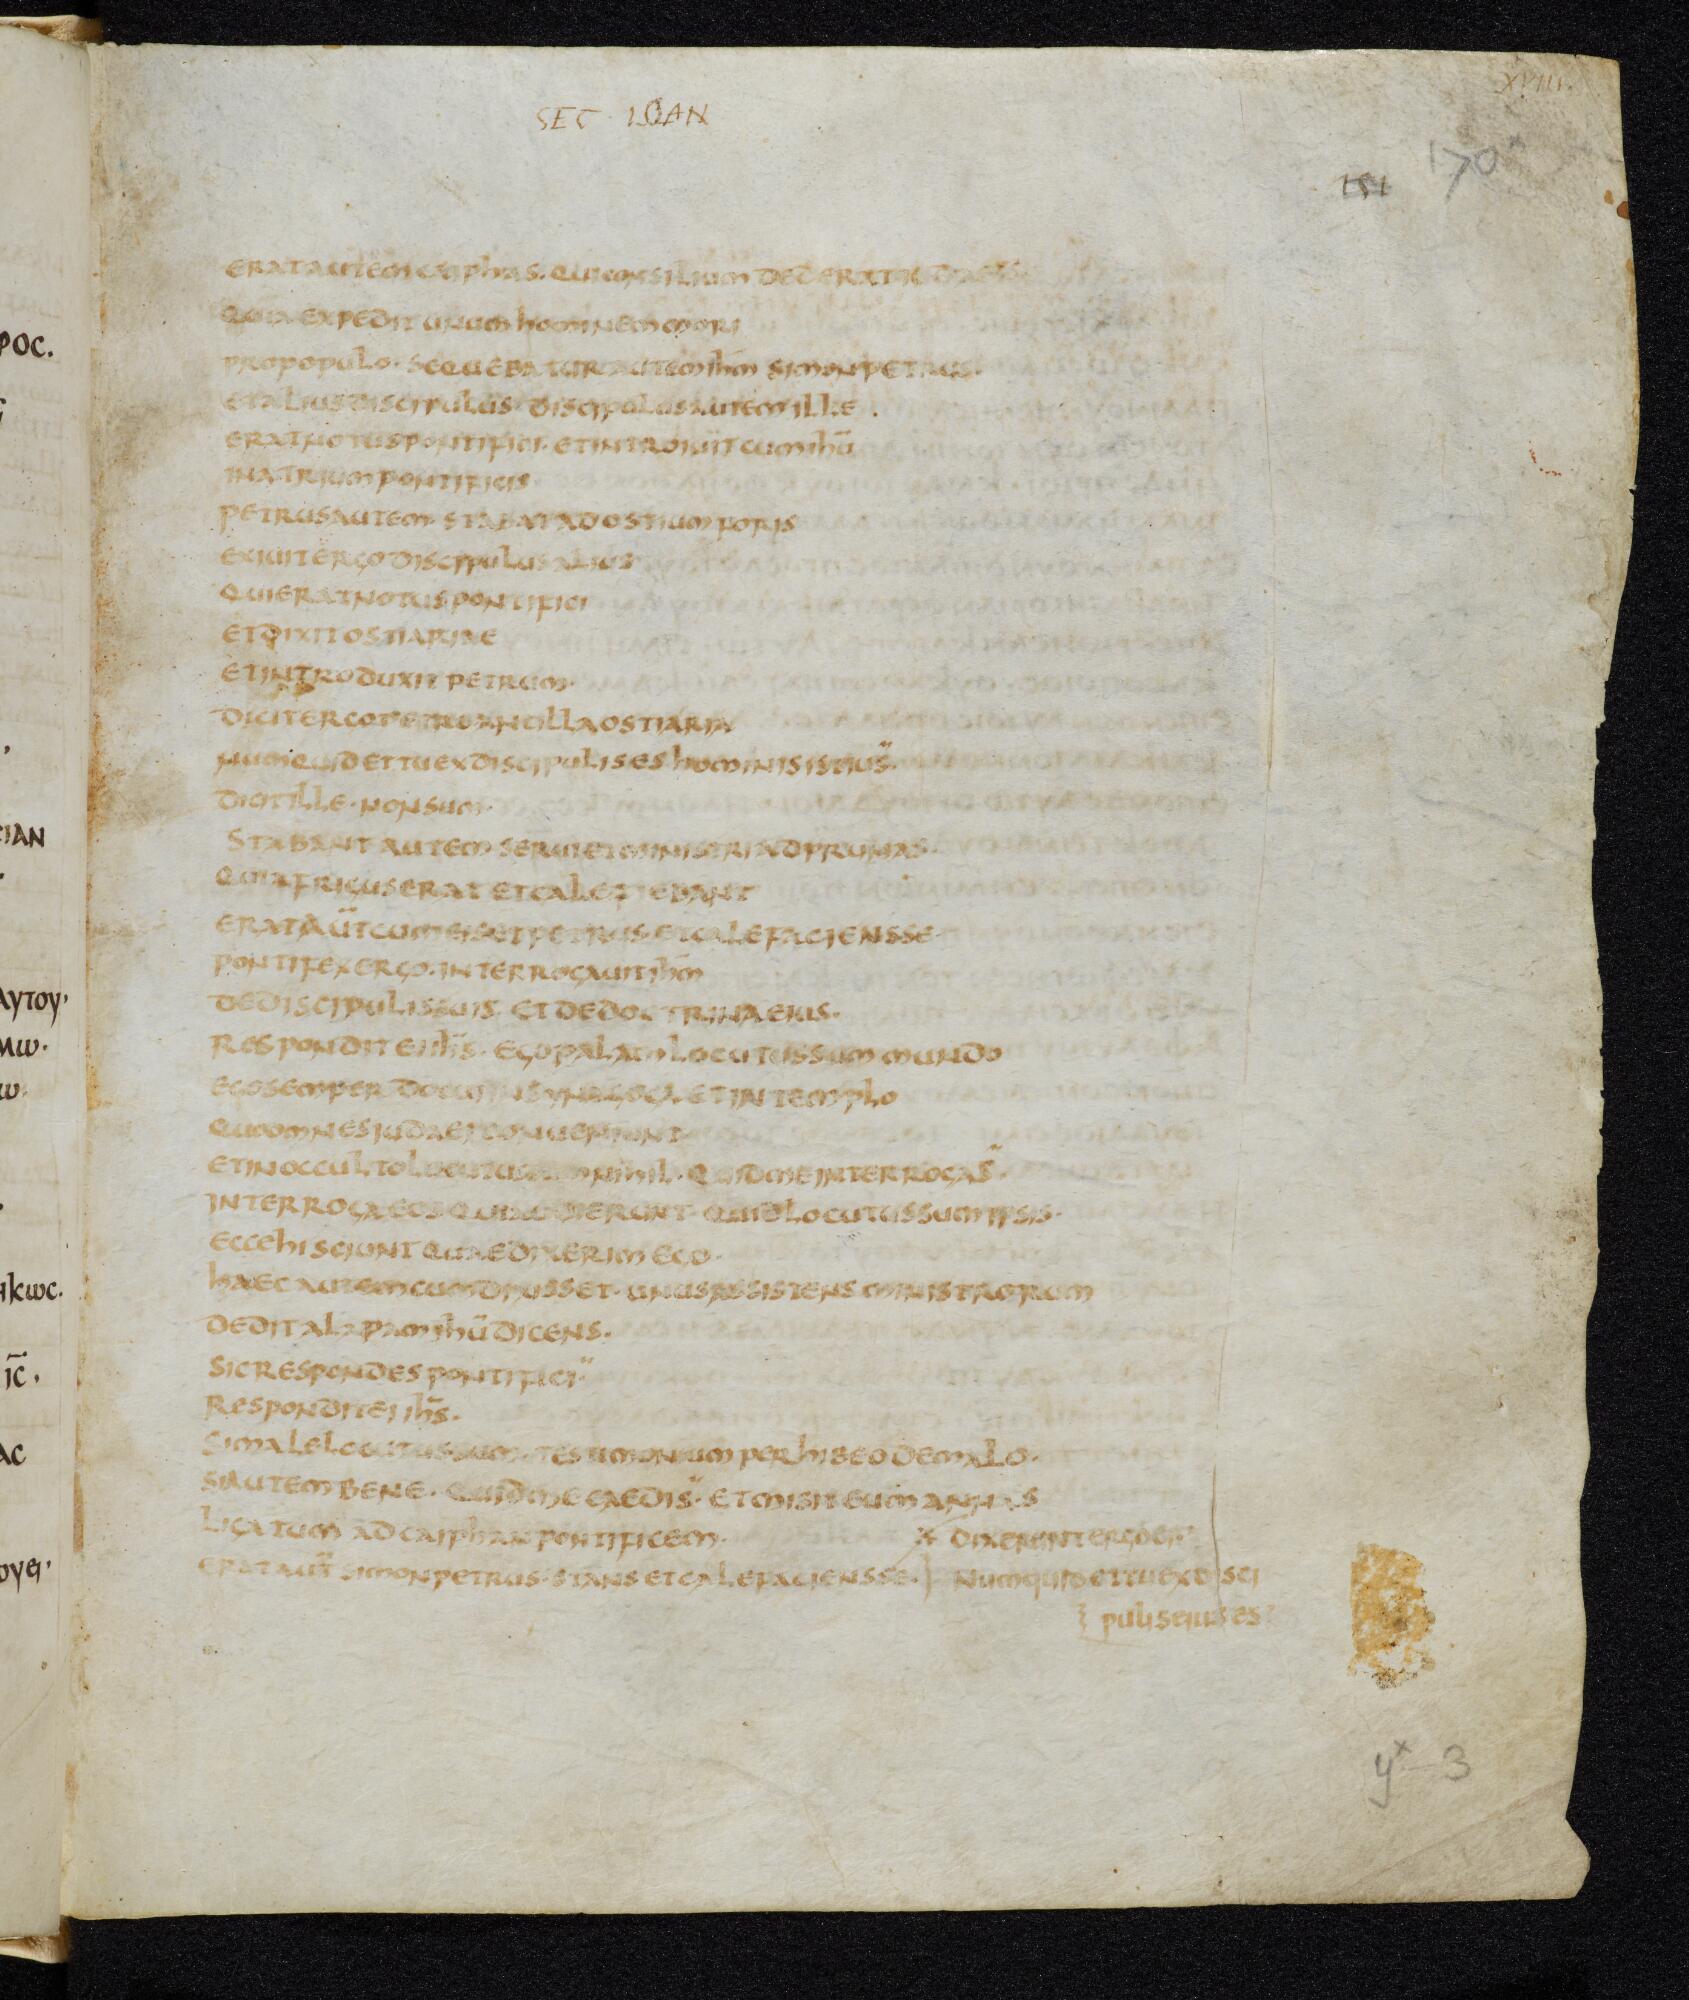 XVIII.
SEC IOAN
170
151
ERATAUTEM CAIPHAS. QUICONSILIUM DEDERAT
QUIA EXPEDIT UNUM HOMINEM MORI
PROPOPULO. SEQUEBATURAUTEM ihm SIMONPETRUS.
ETALIUSDISCIPULUS DISCIPULUSAUTEMILLE.
ERATNOTUSPONTIFICI. ETINTROIUIT CUMihū
INATRIUMPONTIFICIS
PETRUSAUTEM STABATADOSTIUMFORIS
EXIUITERGO DISCIPULUSALIUS
QUIERATNOTUSPONTIFICI
ETDIXITOSTIARIAE
ETINTRODUXIT PETRUM.
DICITERGOPETROANCILLAOSTIARIA
NUMQUIDETTUEXDISCIPULISES HOMINISISTIUS.
DICITILLE. NONSUM.
STABANT AUTEM SERUIETMINISTRI ADPRUNAS.
QUIAFRIGUSERAT ETCALEFIEBANT
ERATAŪT CUMEISETPETRUS. ETCALEFACIENSSE.
PONTIFEXERGO. INTERROGAUIT ihm
DEDISCIPULISSUIS ET DEDOCTRINAEIUS.
RESPONDITEI ihs. EGOPALAMLOCUTUSSUM MUNDO
EGOSEMPER DOCUI INSYNAGOGA. ETINTEMPLO
QUOOMNESIUDAEICONUENIUNT
ETINOCCULTOLOCUTUSSUMNIHIL. QUIDMEINTERROGAS.
INTERROGAEOSQUIAUDIERUNT QUIDLOCUTUSSUMIPSIS.
ECCEHISCIUNT QUAEDIXERIMEGO.
HAEC AUTEMCUMDIXISSET. UNUSASSISTENS MINISTRORUM
DEDITALAPAMihūDICENS.
SICRESPONDESPONTIFICI
RESPONDITEI ihs.
SIMALELOCUTUSSUM. TESTIMONIUMPERHIBEODEMALO.
SIAUTEMBENE. QUIDMECAEDIS. ETMISITEUMANNAS
LIGATUM ADCAIPHANPONTIFICEM. DIXERUNTERGOEI.
ERATAUT SIMONPETRUS. STANSETCALEFACIENSSE. NUMQUIDETTUEXDISCI
PULISEIUSES
yˣ-3
ροс.
ϲΙΑΝ
ΑΥΤΟΥ,
ΜѠ.
Ѡ.
ΗΚѠϹ.
ΙϹ̄.
ΑϹ
ΟΥЄΙ,